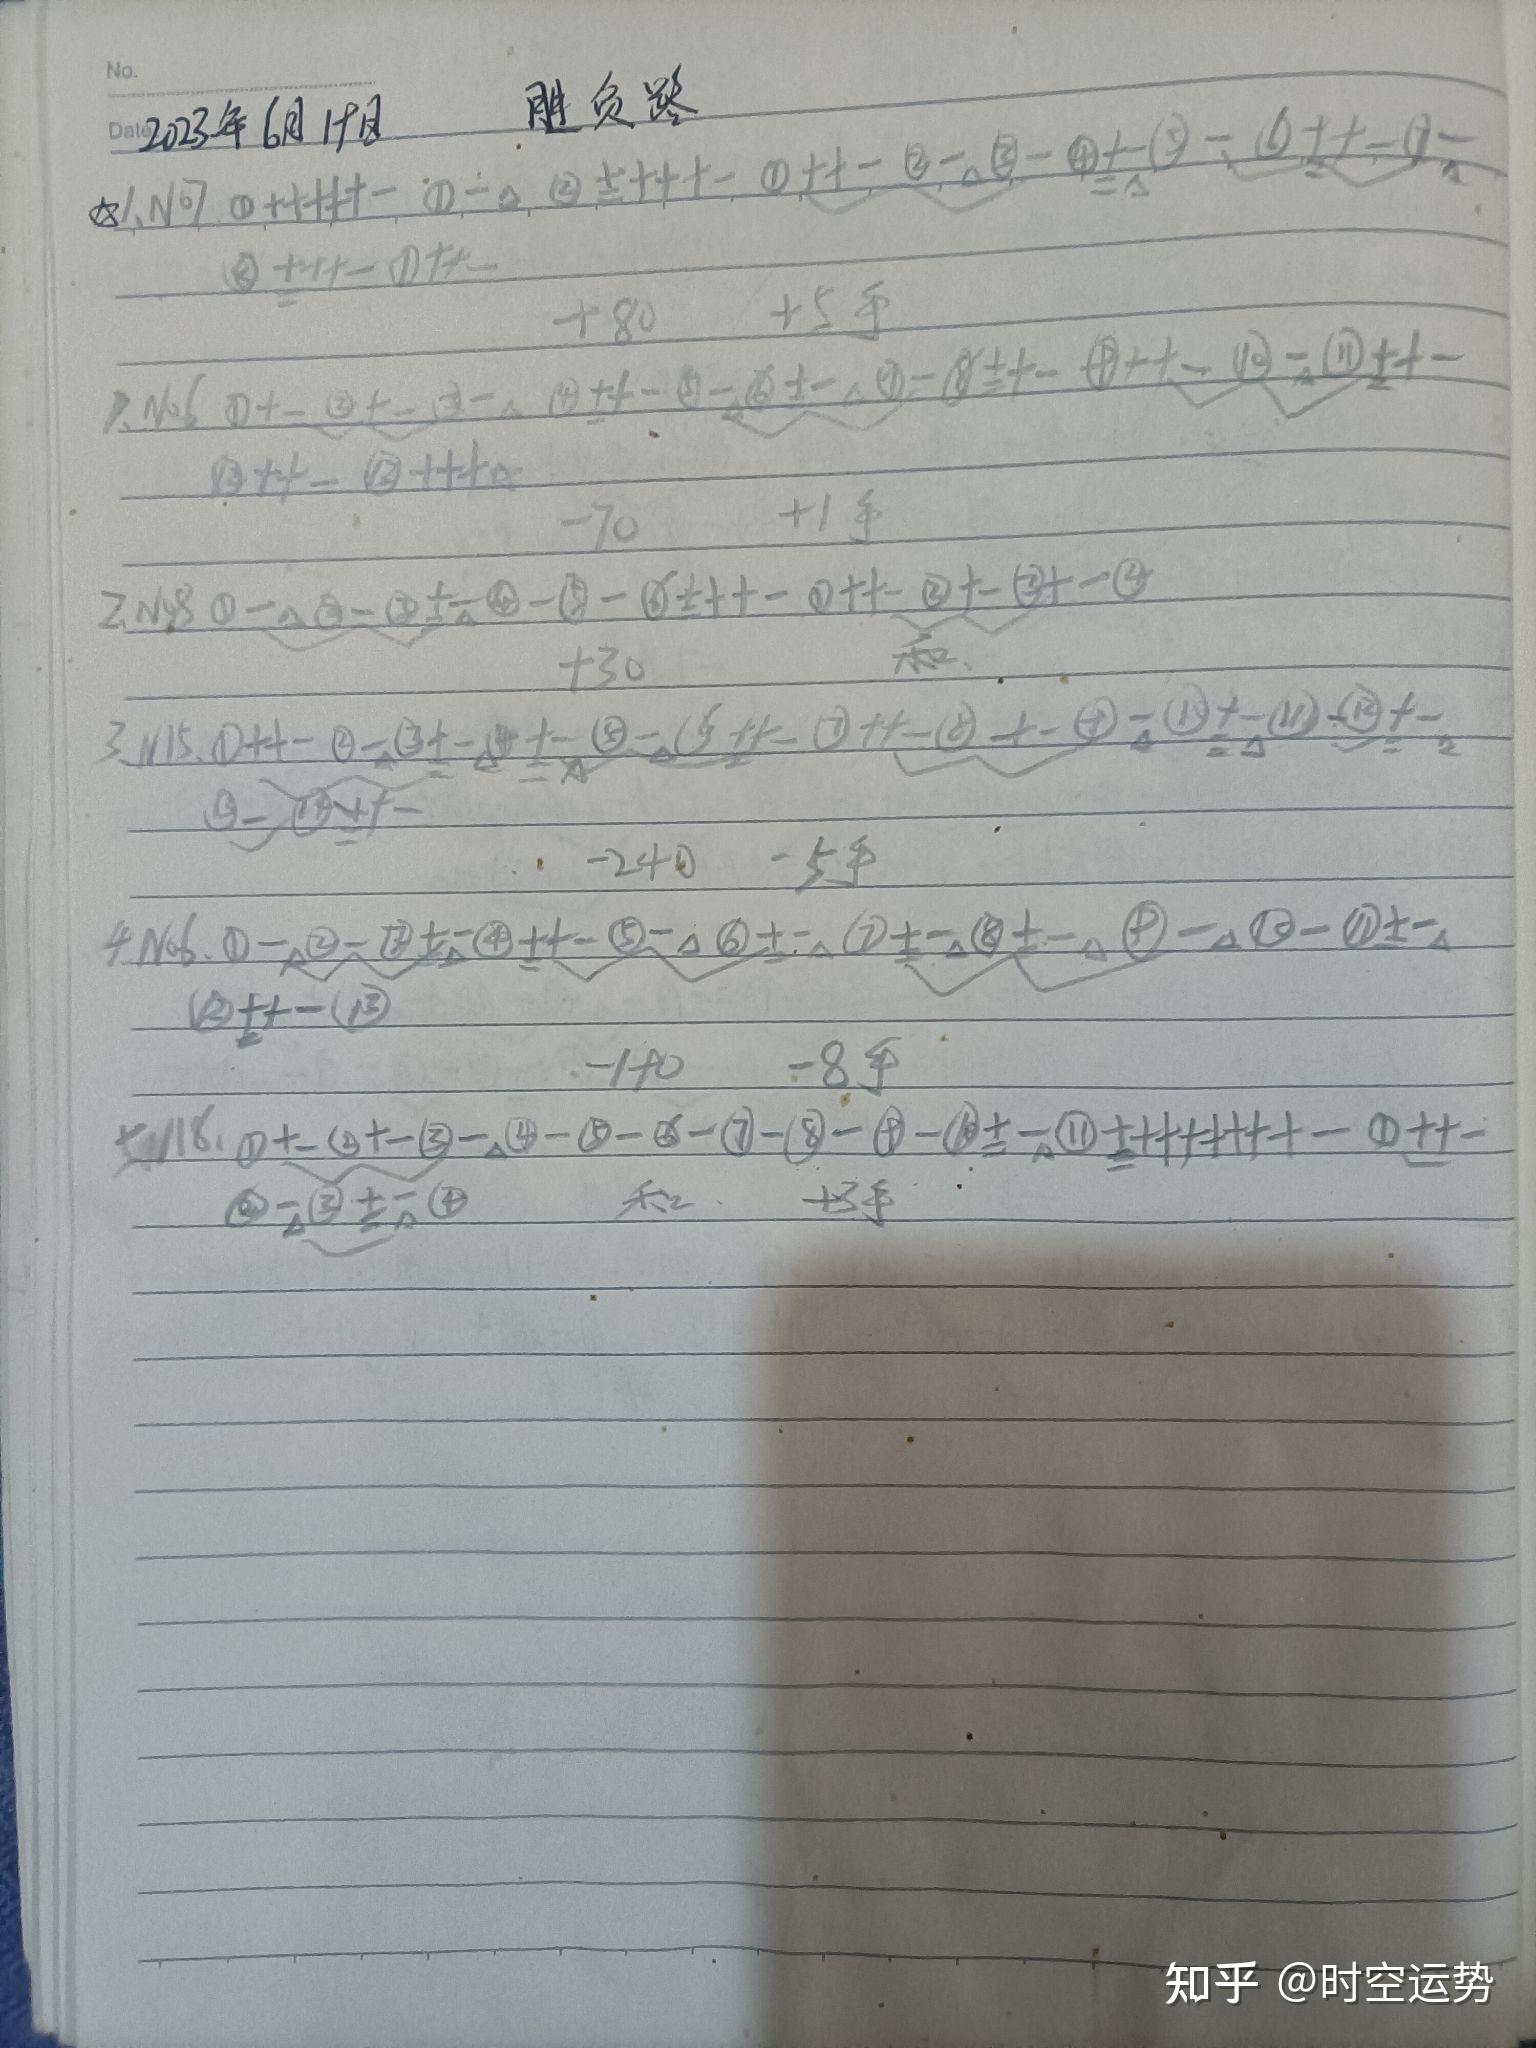 No.
Date 2023年6月19日 胜负路
☆1.No7 ①+++++- ①-△ ②±+++- ①++- ②-△③-④±-△⑤-⑥±+-⑦-△
⑧±++-①++-
+80 +5手
No6 ①+-②+-③-△ ④±+-⑤-△⑥±-△⑦-⑧±+-⑨++-⑩-△⑪±+-
⑫++-⑬+++△
-70 +1手
2.No8 ①-△②-③±-△④-⑤-⑥±++-①++-②+-③+-④
+30 和.
3.N15.①++-②-△③±-△④±-△⑤-△⑥±+-⑦++-⑧+-⑨-△⑩±-△⑪-⑫±-△
⑬-⑭±+-
-240 -5手
4.No6.①-△②-③±-△④±+-⑤-△⑥±-△⑦±-△⑧±-△⑨-△⑩-⑪±-△
⑫±+-⑬
-190 -8手
5.N18.①+-②+-③-△④-⑤-⑥-⑦-⑧-⑨-⑩±-△⑪±++++++++-①++-
②-△③±-△④ 和 +3手
知乎 @时空运势